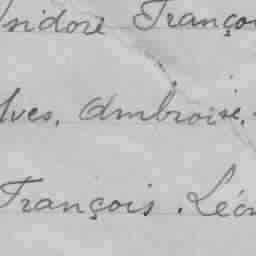 Isidore François
Yves, Ambroise,
François. Léon